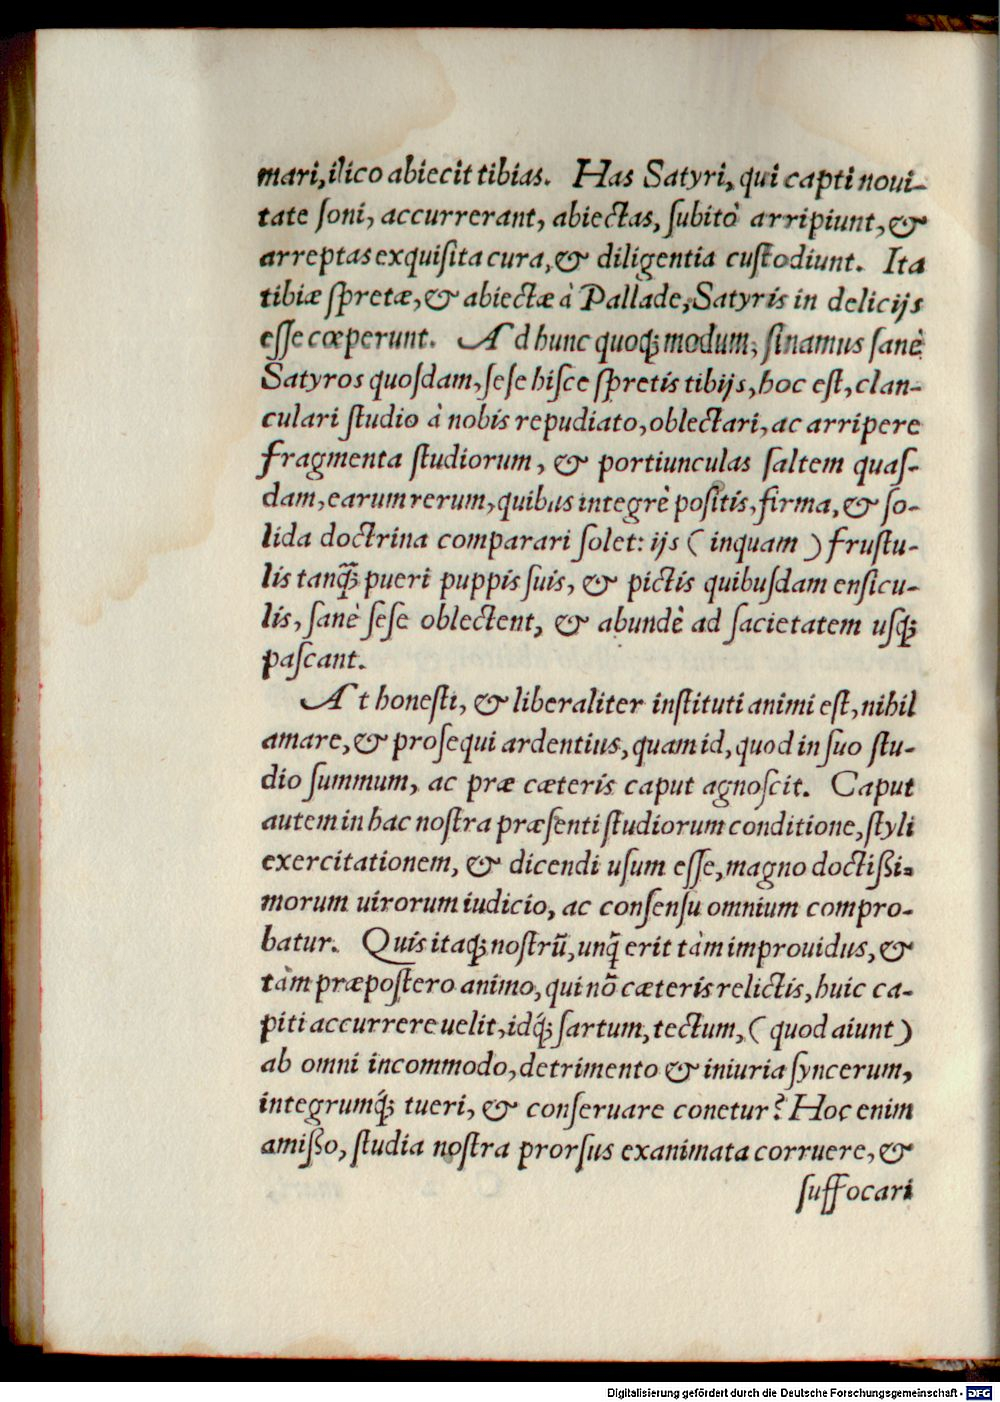 mari, ilico abiecit tibias. Has Satyri, qui capti noui-
tate ſoni, accurrerant, abiectas, ſubitò arripiunt, &
arreptas exquiſita cura, & diligentia cuſtodiunt. Ita
tibiæ ſpretæ, & abiectæ à Pallade, Satyris in delicijs
eſſe cœperunt. Ad hunc quoq; modum, ſinamus ſanè
Satyros quoſdam, ſeſe hiſce ſpretis tibijs, hoc eſt, clan-
culari ſtudio à nobis repudiato, oblectari, ac arripere
fragmenta ſtudiorum, & portiunculas ſaltem quaſ-
dam, earum rerum, quibus integrè poſitis, firma, & ſo-
lida doctrina comparari ſolet: ijs (inquam) fruſtu-
lis tanq̃; pueri puppis ſuis, & pictis quibuſdam enſicu-
lis, ſanè ſeſe oblectent, & abundè ad ſacietatem uſq;
paſcant.
At honeſti, & liberaliter inſtituti animi eſt, nihil
amare, & proſequi ardentius, quam id, quod in ſuo ſtu-
dio ſummum, ac præ cæteris caput agnoſcit. Caput
autem in hac noſtra præſenti ſtudiorum conditione, ſtyli
exercitationem, & dicendi uſum eſſe, magno doctißi-
morum uirorum iudicio, ac conſenſu omnium compro-
batur. Quis itaq; noſtrũ, unq̃ erit tàm improuidus, &
tàm præpoſtero animo, qui nõ cæteris relictis, huic ca-
piti accurrere uelit, idq́; ſartum, tectum, (quod aiunt)
ab omni incommodo, detrimento & iniuria ſyncerum,
integrumq́; tueri, & conſeruare conetur? Hoc enim
amißo, ſtudia noſtra prorſus exanimata corruere, &
ſuffocari
Digitalisierung gefördert durch die Deutsche Forschungsgemeinschaft - DFG